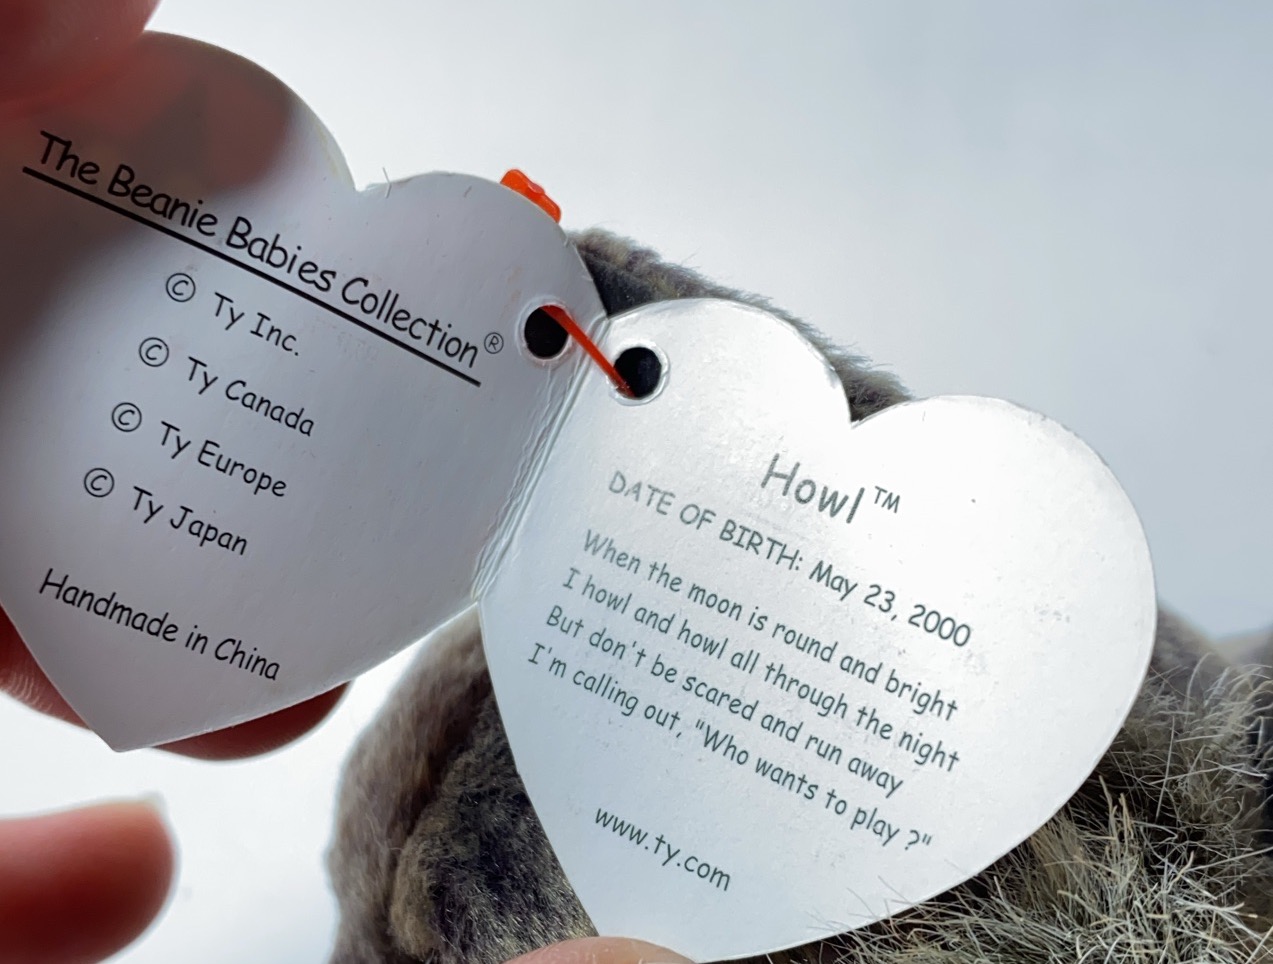 The Beanie Babies Collection®
© Ty Inc.
© Ty Canada
© Ty Europe
© Ty Japan
Handmade in China
Howl™
DATE OF BIRTH: May 23, 2000
When the moon is round and bright
I howl and howl all through the night
But don't be scared and run away
I'm calling out, "Who wants to play ?"
www.ty.com